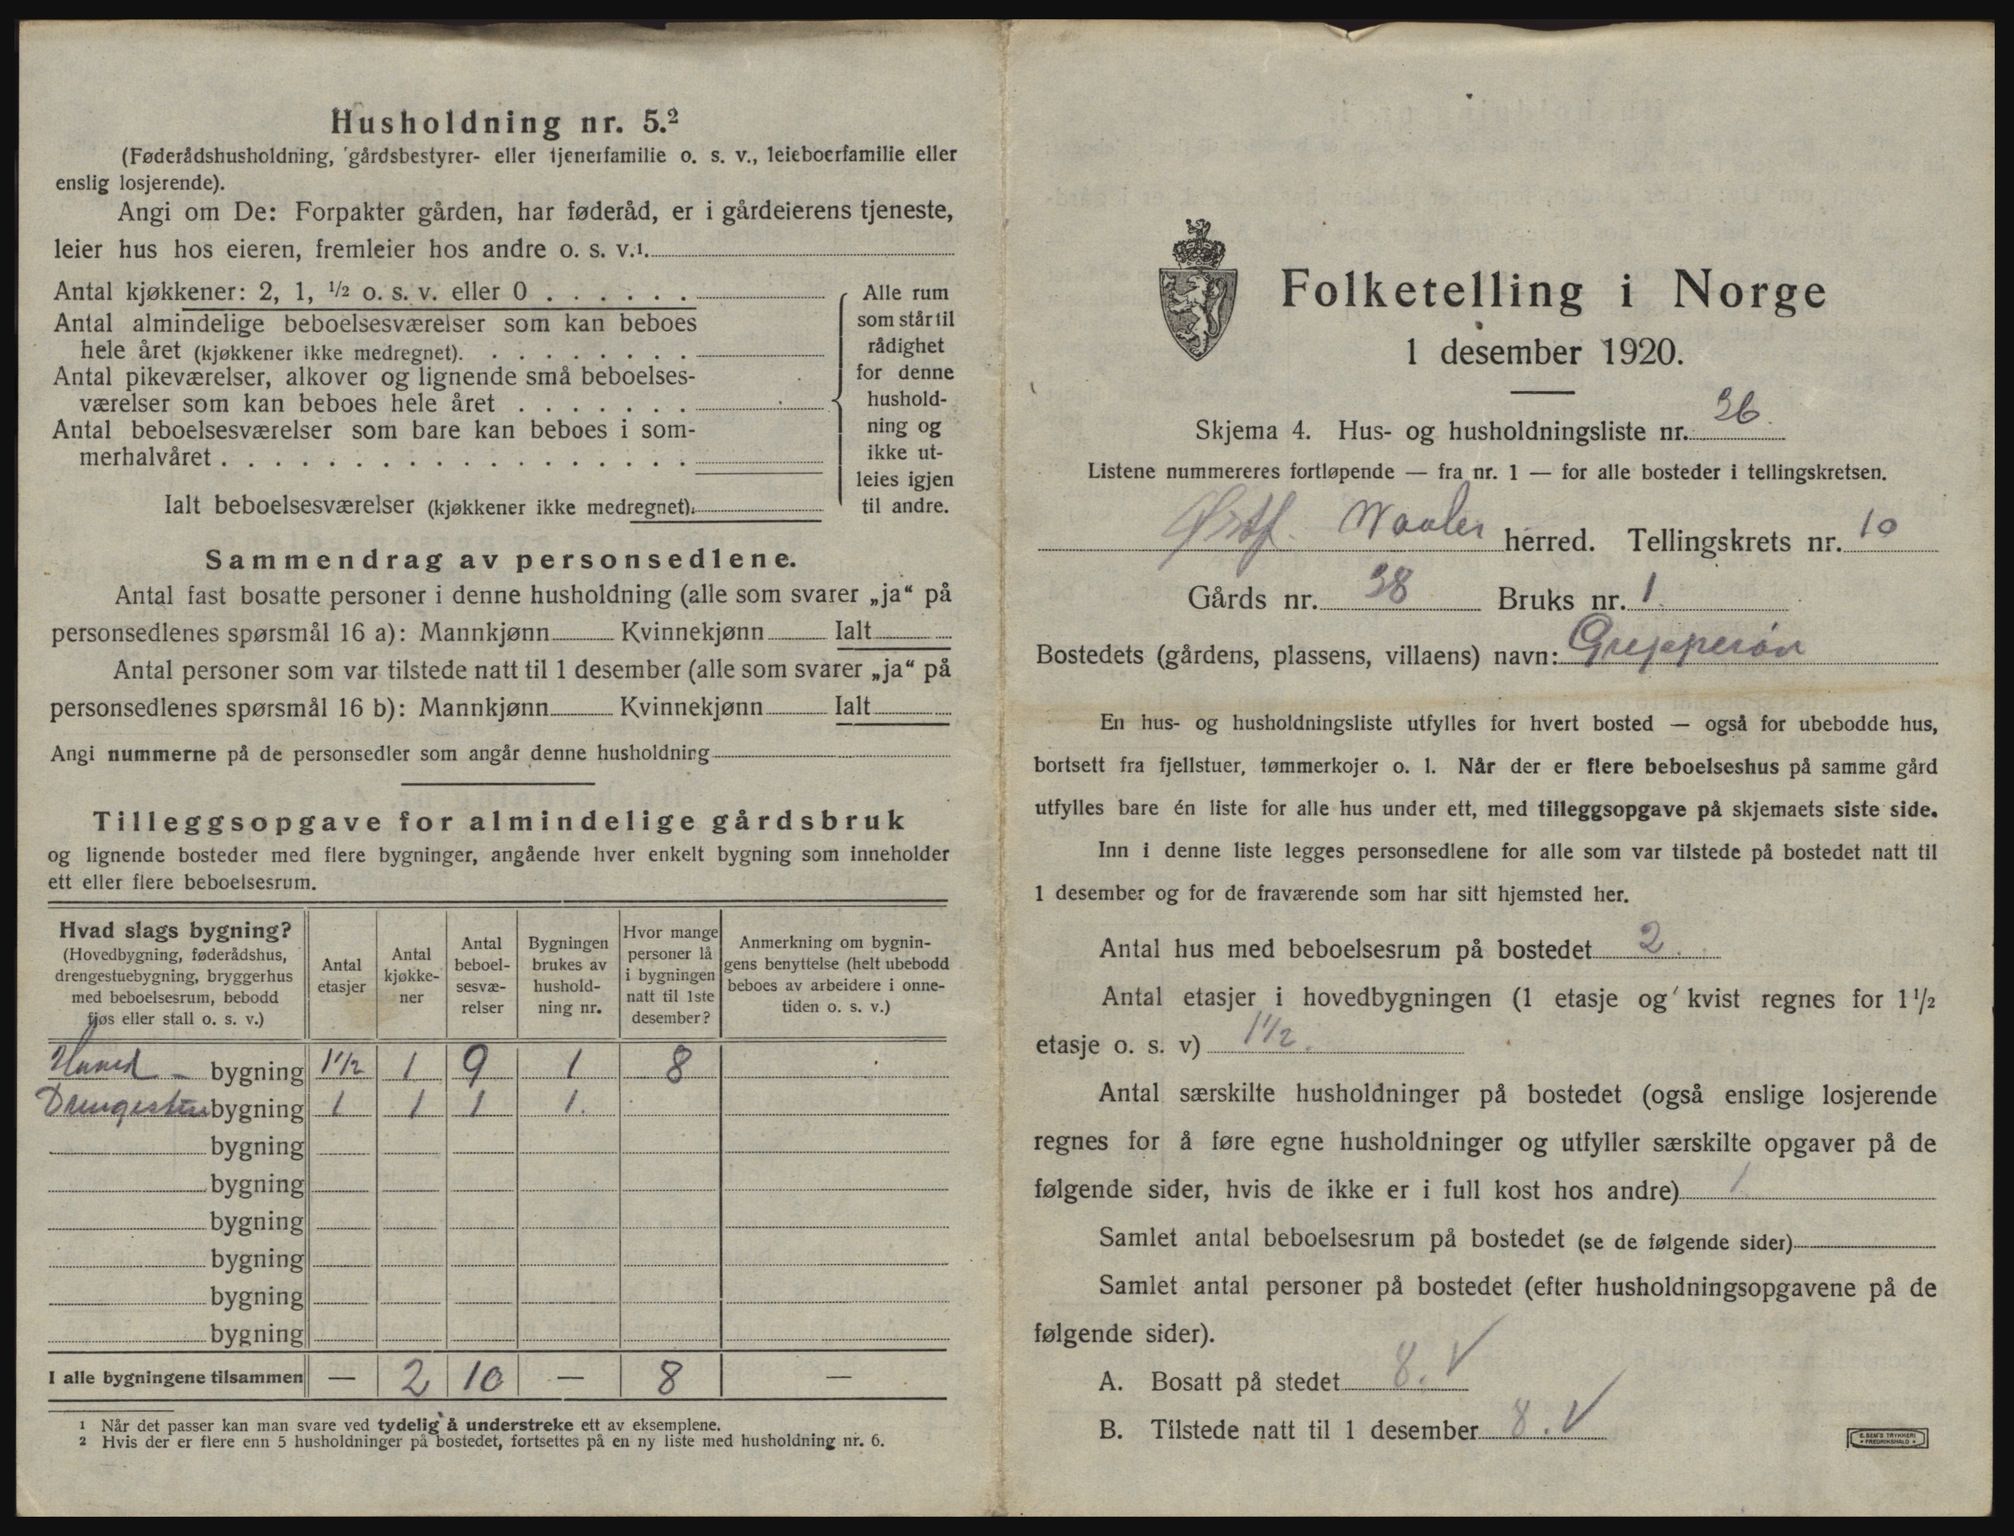 Husholdning nr. 5.²
(Føderådshusholdning, gårdsbestyrer- eller tjenerfamilie o. s. v., leieboerfamilie eller
enslig losjerende).
Angi om De: Forpakter gården, har føderåd, er i gårdeierens tjeneste,
leier hus hos eieren, fremleier hos andre o. s. v.¹
Antal kjøkkener: 2, 1, ½ o. s. v. eller 0
Antal almindelige beboelsesværelser som kan beboes
hele året (kjøkkener ikke medregnet).
Antal pikeværelser, alkover og lignende små beboelses-
værelser som kan beboes hele året
Antal beboelsesværelser som bare kan beboes i som-
merhalvåret
Ialt beboelsesværelser (kjøkkener ikke medregnet):
Alle rum
som står til
rådighet
for denne
hushold-
ning og
ikke ut-
leies igjen
til andre.
Sammendrag av personsedlene.
Antal fast bosatte personer i denne husholdning (alle som svarer „ja“ på
personsedlenes spørsmål 16 a): Mannkjønn Kvinnekjønn Ialt
Antal personer som var tilstede natt til 1 desember (alle som svarer „ja“ på
personsedlenes spørsmål 16 b): Mannkjønn Kvinnekjønn Ialt
Angi nummerne på de personsedler som angår denne husholdning
Tilleggsopgave for almindelige gårdsbruk
og lignende bosteder med flere bygninger, angående hver enkelt bygning som inneholder
ett eller flere beboelsesrum.
Hvad slags bygning?
(Hovedbygning, føderådshus,
drengestuebygning, bryggerhus
med beboelsesrum, bebodd
fjøs eller stall o. s. v.)
Antal
etasjer
Antal
kjøkke-
ner
Antal
beboel-
sesvæ-
relser
Bygningen
brukes av
hushold-
ning nr.
Hvor mange
personer lå
i bygningen
natt til 1ste
desember?
Anmerkning om bygnin-
gens benyttelse (helt ubebodd
beboes av arbeidere i onne-
tiden o. s. v.)
bygning 1½ 1 9 1 8
Drengestue bygning 1 1 1 1.
bygning
bygning
bygning
bygning
bygning
bygning
I alle bygningene tilsammen — 2 10 — 8 —
¹ Når det passer kan man svare ved tydelig å understreke ett av eksemplene.
² Hvis der er flere enn 5 husholdninger på bostedet, fortsettes på en ny liste med husholdning nr. 6.
Folketelling i Norge
1 desember 1920.
Skjema 4. Hus- og husholdningsliste nr. 36.
Listene nummereres fortløpende — fra nr. 1 — for alle bosteder i tellingskretsen.
Østf. Vaaler herred. Tellingskrets nr. 10
Gårds nr. 38 Bruks nr. 1.
Bostedets (gårdens, plassens, villaens) navn: Grepperøn
En hus- og husholdningsliste utfylles for hvert bosted — også for ubebodde hus,
bortsett fra fjellstuer, tømmerkojer o. l. Når der er flere beboelseshus på samme gård
utfylles bare én liste for alle hus under ett, med tilleggsopgave på skjemaets siste side.
Inn i denne liste legges personsedlene for alle som var tilstede på bostedet natt til
1 desember og for de fraværende som har sitt hjemsted her.
Antal hus med beboelsesrum på bostedet 2.
Antal etasjer i hovedbygningen (1 etasje og kvist regnes for 1½
etasje o. s. v) 1½.
Antal særskilte husholdninger på bostedet (også enslige losjerende
regnes for å føre egne husholdninger og utfyller særskilte opgaver på de
følgende sider, hvis de ikke er i full kost hos andre) 1
Samlet antal beboelsesrum på bostedet (se de følgende sider)
Samlet antal personer på bostedet (efter husholdningsopgavene på de
følgende sider).
A. Bosatt på stedet 8. √
B. Tilstede natt til 1 desember 8. √
E. SEM'S TRYKKERI
• FREDRIKSHALD •